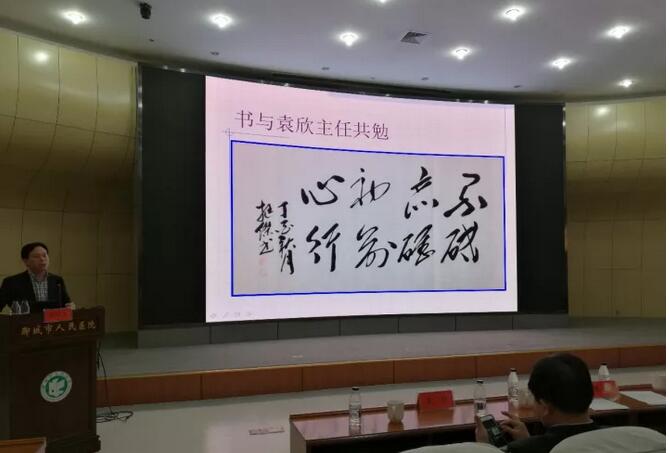 书与袁欣主任共勉
不忘初心
砥砺前行
丁酉
聊城市人民医院